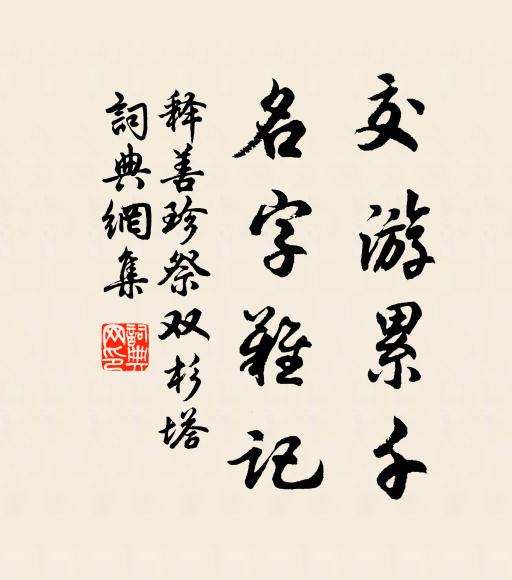 交游累千
名字难记
释善珍祭双杉塔
詞典網集
詞典网印